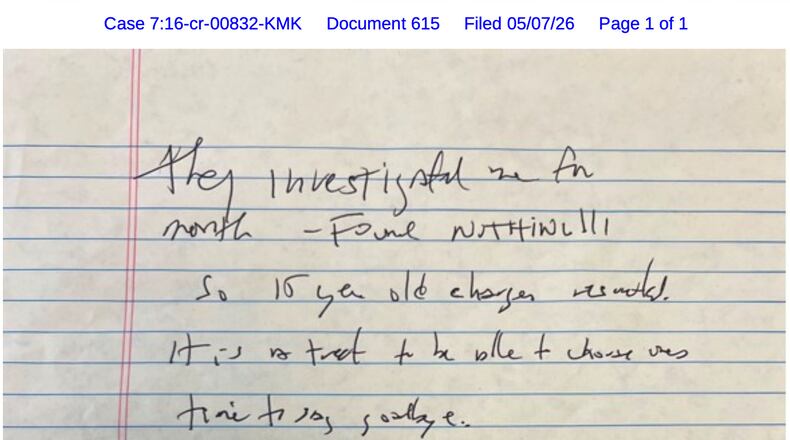 Case 7:16-cr-00832-KMK Document 615 Filed 05/07/26 Page 1 of 1
They investigated me for
month – Found NOTHING!!!
So 15 year old charges resulted.
It is a treat to be able to choose ones
time to say goodbye.